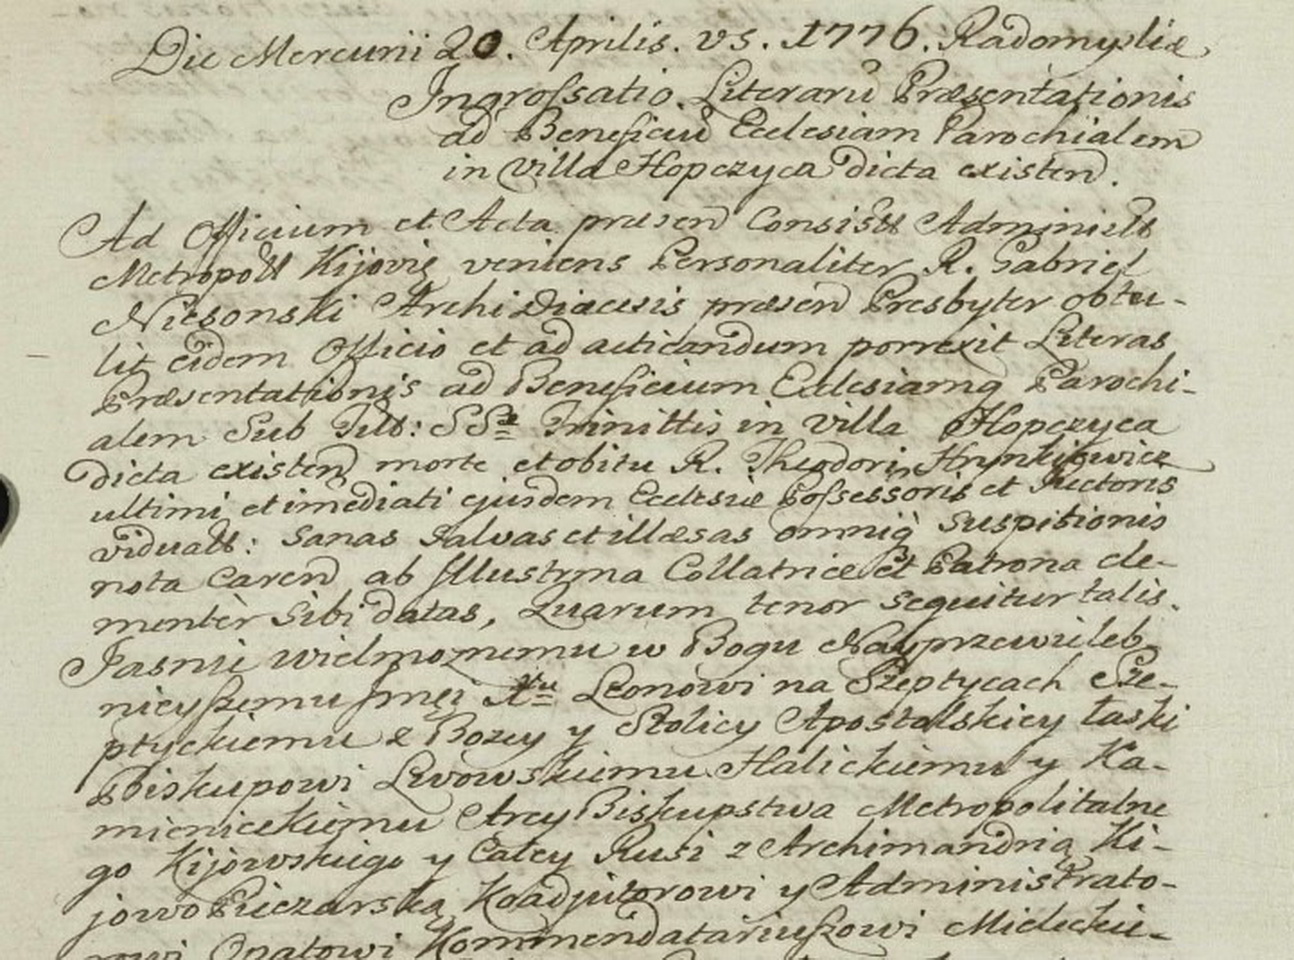 Die Mercurii 20. Aprilis. vs. 1776. Radomysliæ
Ingrossatio Literarũ Præsentationis
ad Beneficiũ Ecclesiam Parochialem
in Villa Hopczyca dicta existen̄.
Ad Officium et Acta præsen̄ Consistł Administł
Metropołł Kijoviȩ veniens Personaliter R. Gabriel
Niesonski Archi Diæcesis præsen̄ Presbyter obtu-
lit eidem Officio et ad acticandum porrexit Literas
Præsentationis ad Beneficium Ecclesiamq Parochi-
alem Sub Titł: SSæ Trinittis in Villa Hopczyca
dicta existen̄ morte et obitu R. Theodori Hrynkiewicz
ultimi et imediati ejusdem Ecclesiæ Possessoris et Rectoris
viduatł: Sanas Salvas et illæsas omniq̃ Suspitionis
nota Caren̄ ab Illustrma Collatrice et Patrona cle-
mentèr Sibi datas, Quarum tenor Sequitur talis.
Jasnie wielmoznemu w Bogu Nayprzewieleb
nieyszemu Jmci Xu Leonowi na Szeptycach Sze-
ptyckiemu z Bozey y Stolicy Apostolskiey łaski
Biskupowi Lwowskiemu Halickiemu y Ka-
mienieckiemu Arcy Biskupstwa Metropolitalne
go Kijowskiego y Całey Rusi z Archimandrią Ki-
jowo Pieczarską Koadjutorowi y Administrato-
rowi Opatowi Kommendatariuszowi Mielecki-